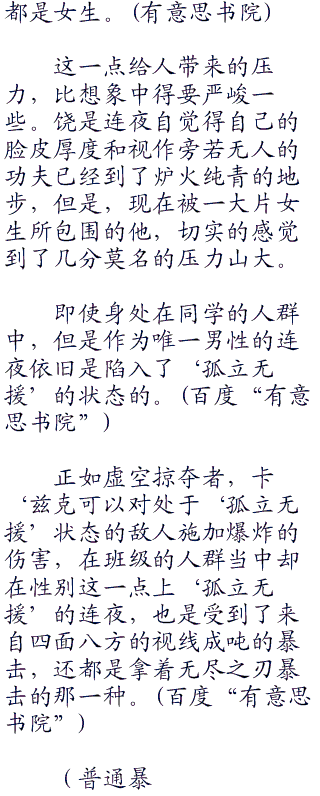 都是女生。(有意思书院)
这一点给人带来的压
力，比想象中得要严峻一
些。饶是连夜自觉得自己的
脸皮厚度和视作旁若无人的
功夫已经到了炉火纯青的地
步，但是，现在被一大片女
生所包围的他，切实的感觉
到了几分莫名的压力山大。
即使身处在同学的人群
中，但是作为唯一男性的连
夜依旧是陷入了‘孤立无
援’的状态的。(百度“有意
思书院”)
正如虚空掠夺者，卡
‘兹克可以对处于‘孤立无
援’状态的敌人施加爆炸的
伤害，在班级的人群当中却
在性别这一点上‘孤立无
援’的连夜，也是受到了来
自四面八方的视线成吨的暴
击，还都是拿着无尽之刃暴
击的那一种。(百度“有意思
书院”)
（普通暴